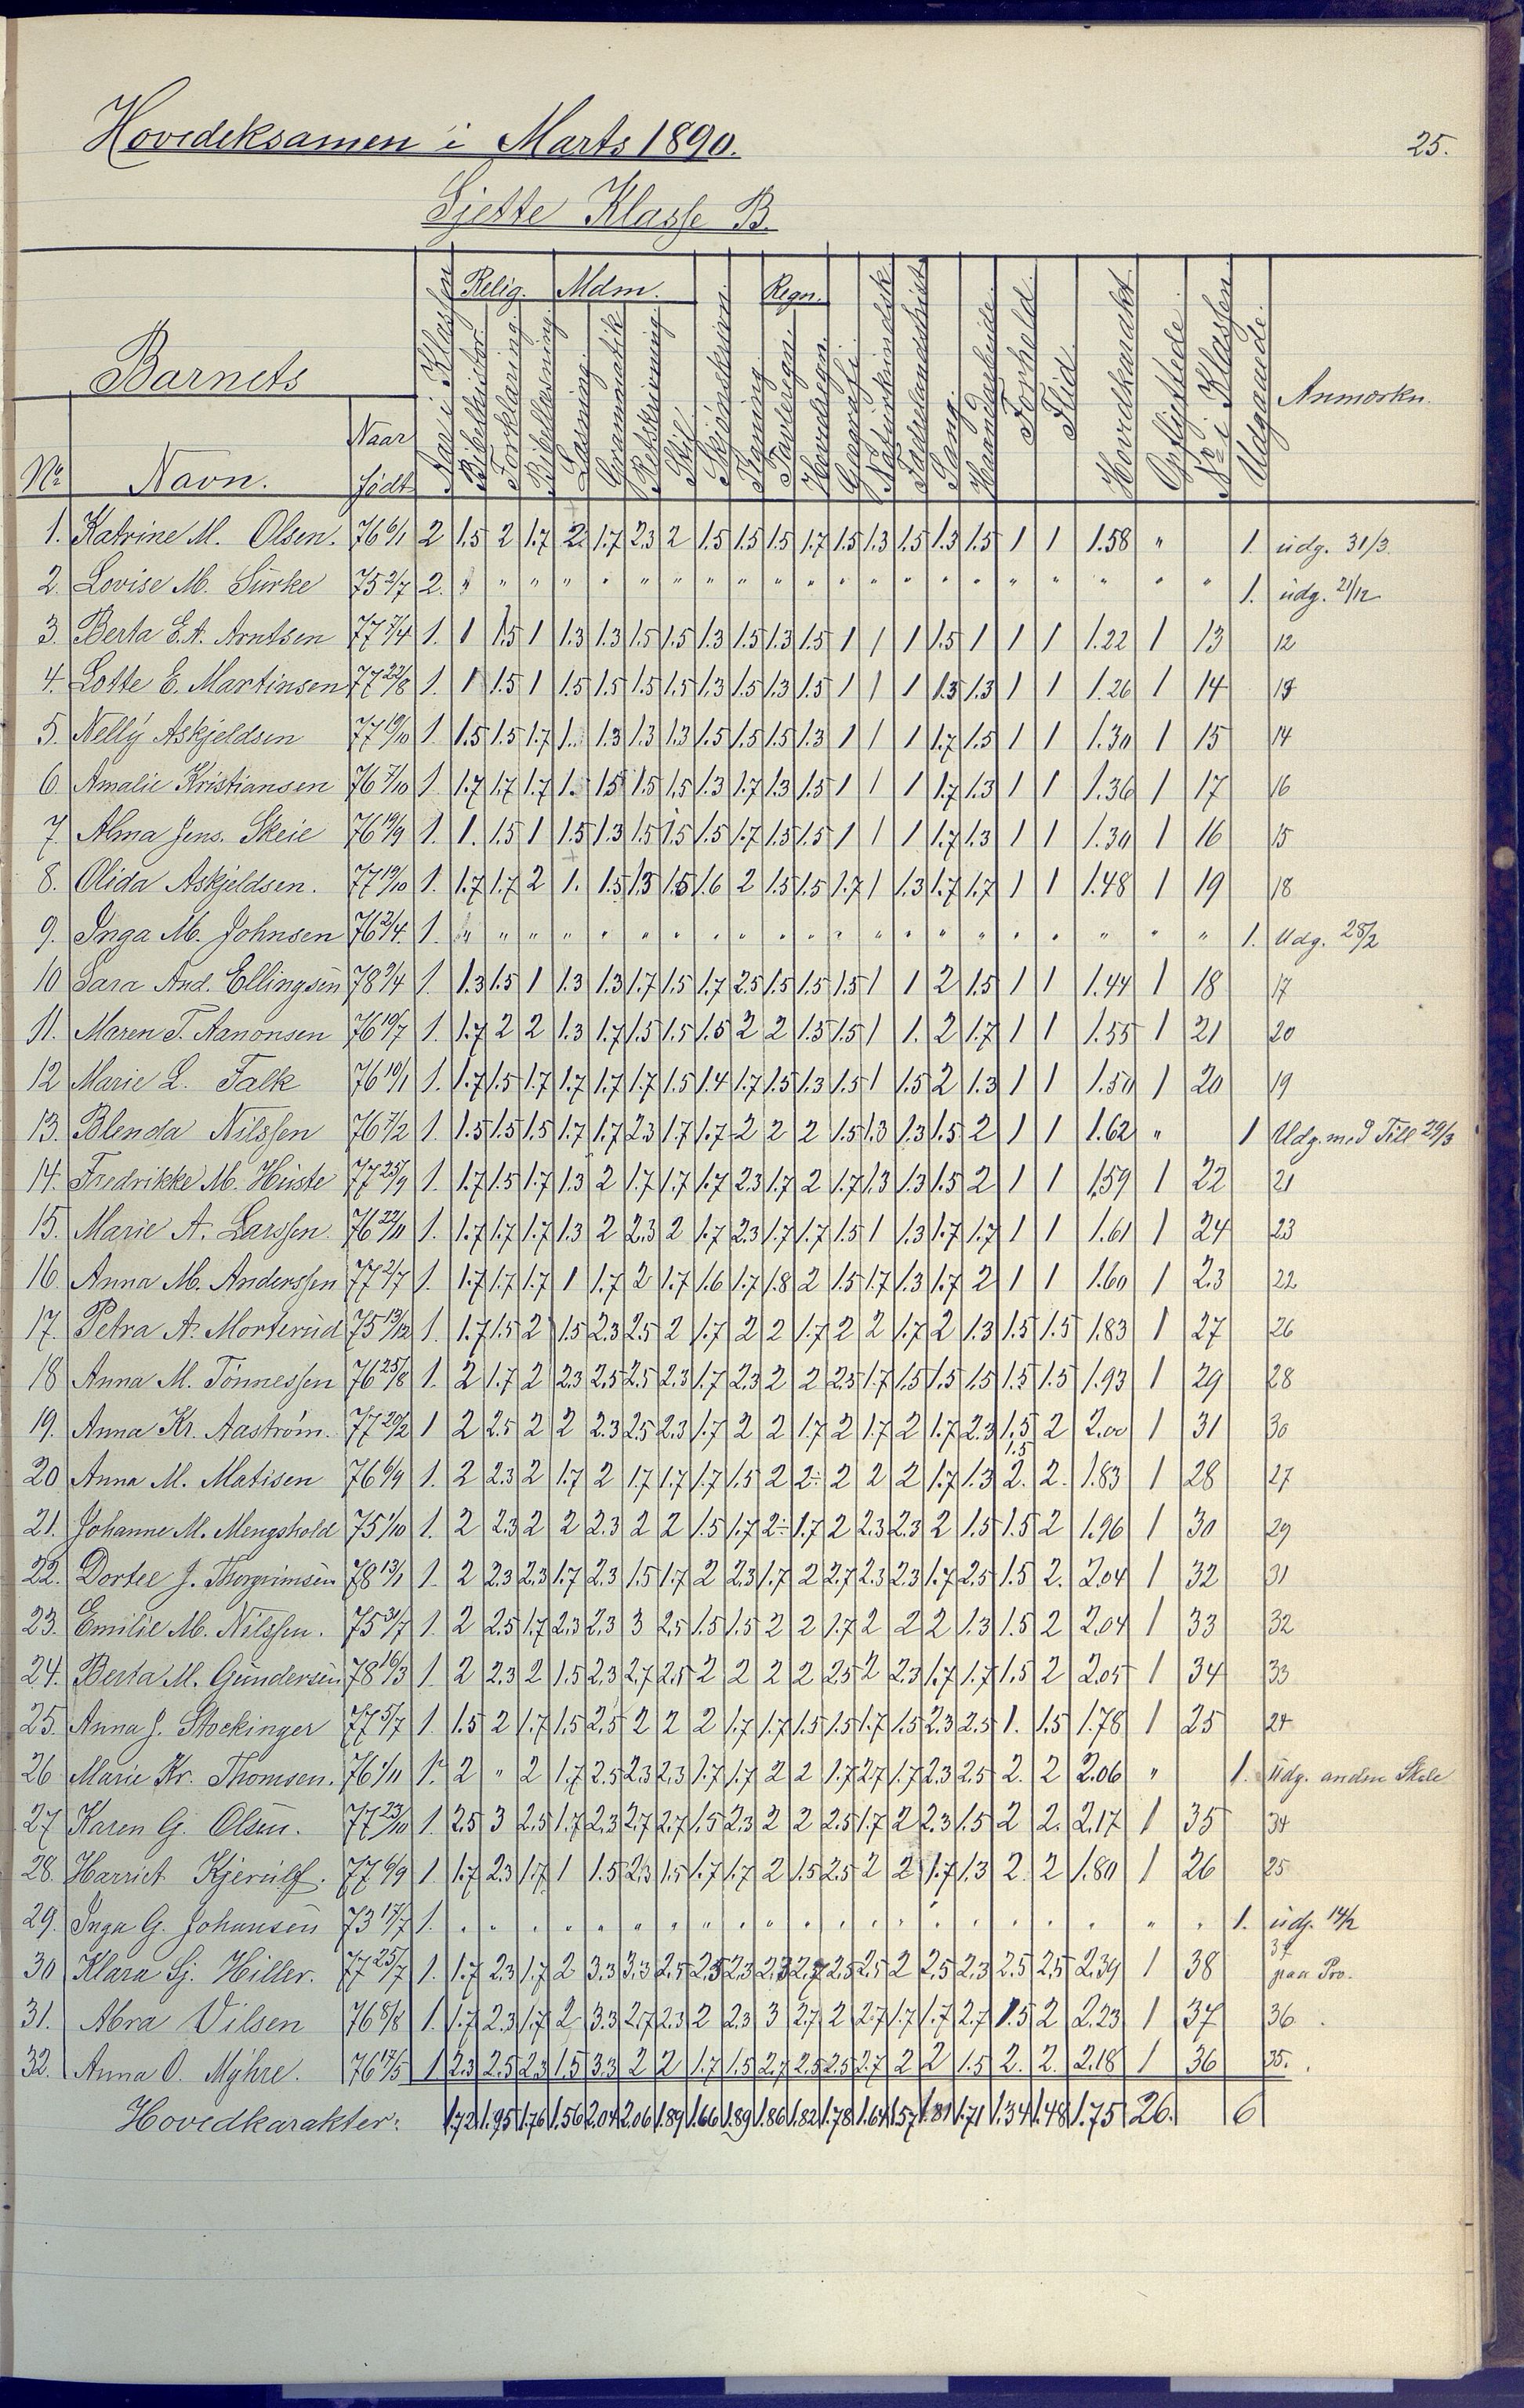 Hovedeksamen i Marts 1890.
25.
Sjette Klasse B.
Barnets
Relig. Mdm. Regn.
No Navn. Naar født Aar i Klassen Bibelhistor. Forklaring. Bibellæsning Læsning. Grammatik Retskrivning Stil. Skjønskrivn. Tegning Tavleregn. Hovedregn. Geografi. Naturkundsk. Fædrelandshist. Sang. Haandarbeide. Forhold. Flid. Hovedkarakt. Opflyttede. Nr i Klassen. Udgaaende. Anmærkn.
1. Katrine M. Olsen. 76 6/1 2 1.5 2 1.7 2 1.7 2.3 2 1.5 1.5 1.5 1.7 1.5 1.3 1.5 1.3 1.5 1 1 1.58 " 1. udg. 31/3.
2. Lovise M. Surke 75 2/7 2. " " " " " " " " " " " " " " " " " " " " " 1. udg. 21/12
3. Berta E. A. Arntsen 77 7/4 1. 1 1.5 1 1.3 1.3 1.5 1.5 1.3 1.5 1.3 1.5 1 1 1 1.5 1 1 1 1.22 1 13 12
4. Lotte E. Martinsen 77 22/8 1. 1 1.5 1 1.5 1.5 1.5 1.5 1.3 1.5 1.3 1.5 1 1 1 1.3 1.3 1 1 1.26 1 14 13
5. Nelly Askjeldsen 77 19/10 1. 1.5 1.5 1.7 1. 1.3 1.3 1.3 1.5 1.5 1.5 1.3 1 1 1 1.7 1.5 1 1 1.30 1 15 14
6. Amalie Kristiansen 76 7/10 1. 1.7 1.7 1.7 1. 1.5 1.5 1.5 1.3 1.7 1.3 1.5 1 1 1 1.7 1.3 1 1 1.36 1 17 16
7. Alma Jens. Skeie 76 19/9 1. 1. 1.5 1 1.5 1.3 1.5 1.5 1.5 1.7 1.5 1.5 1 1 1 1.7 1.3 1 1 1.30 1 16 15
8. Olida Askjeldsen. 77 19/10 1. 1.7 1.7 2 1. 1.5 1.3 1.5 1.6 2 1.5 1.5 1.7 1 1.3 1.7 1.7 1 1 1.48 1 19 18
9. Inga M. Johnsen 76 2/4. 1. " " " " " " " " " " " " " " " " " " " " " 1. Udg. 28/2
10 Sara And. Ellingsen 78 9/4 1. 1.3 1.5 1 1.3 1.3 1.7 1.5 1.7 2.5 1.5 1.5 1.5 1 1 2 1.5 1 1 1.44 1 18 17
11. Maren T. Aanonsen 76 19/7 1. 1.7 2 2 1.3 1.7 1.5 1.5 1.5 2 2 1.5 1.5 1 1. 2 1.7 1 1 1.55 1 21 20
12 Marie L. Falk 76 10/1 1. 1.7 1.5 1.7 1.7 1.7 1.7 1.5 1.4 1.7 1.5 1.3 1.5 1 1.5 2 1.3 1 1 1.50 1 20 19
13. Blenda Nilssen 76 7/2 1. 1.5 1.5 1.5 1.7 1.7 2.3 1.7 1.7 2 2 2 1.5 1.3 1.3 1.5 2 1 1 1.62 " 1 Udg. med Till 29/3
14. Fredrikke M. Huste 77 25/9 1. 1.7 1.5 1.7 1.3 2 1.7 1.7 1.7 2.3 1.7 2 1.7 1.3 1.3 1.5 2 1 1 1.59 1 22 21
15. Marie A. Larssen. 76 22/11 1. 1.7 1.7 1.7 1.3 2 2.3 2 1.7 2.3 1.7 1.7 1.5 1 1.3 1.7 1.7 1 1 1.61 1 24 23
16. Anna M. Anderssen 77 2/7 1. 1.7 1.7 1.7 1 1.7 2 1.7 1.6 1.7 1.8 2 1.5 1.7 1.3 1.7 2 1 1 1.60 1 23 22
17. Petra A. Morterud 75 13/12 1. 1.7 1.5 2 1.5 2.3 2.5 2 1.7 2 2 1.7 2 2 1.7 2 1.3 1.5 1.5 1.83 1 27 26
18 Anna M. Tönnessen 76 25/8 1. 2 1.7 2 2.3 2.5 2.5 2.3 1.7 2.3 2 2 2.3 1.7 1.5 1.5 1.5 1.5 1.5 1.93 1 29 28
19. Anna Kr. Aaström. 77 20/2 1 2 2.5 2 2 2.3 2.5 2.3 1.7 2 2 1.7 2 1.7 2 1.7 2.3 1.5 2 2.00 1 31 30
20 Anna M. Matisen 76 6/9 1. 2 2.3 2 1.7 2 1.7 1.7 1.7 1.5 2 2 2 2 2 1.7 1.3 1.5 2. 2. 1.83 1 28 27
21. Johanne M. Mengshold 75 1/10 1. 2 2.3 2 2 2.3 2 2 1.5 1.7 2 1.7 2 2.3 2.3 2 1.5 1.5 2 1.96 1 30 29
22. Dortee J. Thorgrimsen 78 13/1 1. 2 2.3 2.3 1.7 2.3 1.5 1.7 2 2.3 1.7 2 2.7 2.3 2.3 1.7 2.5 1.5 2. 2.04 1 32 31
23. Emilie M. Nilssen. 75 31/7 1. 2 2.5 1.7 2.3 2.3 3 2.5 1.5 1.5 2 2 1.7 2 2 2 1.3 1.5 2 2.04 1 33 32
24. Berta M. Gundersen 78 16/3 1. 2 2.3 2 1.5 2.3 2.7 2.5 2 2 2 2 2.5 2 2.3 1.7 1.7 1.5 2 2.05 1 34 33
25. Anna J. Stockinger 77 5/7 1. 1.5 2 1.7 1.5 2.5 2 2 2 1.7 1.7 1.5 1.5 1.7 1.5 2.3 2.5 1. 1.5 1.78 1 25 24
26 Marie Kr. Thomsen. 76 1/11 1. 2 " 2 1.7 2.5 2.3 2.3 1.7 1.7 2 2 1.7 2.7 1.7 2.3 2.5 2. 2 2.06 " 1. Udg. anden Skole
27 Karen G. Olsen. 77 23/10 1. 2.5 3 2.5 1.7 2.3 2.7 2.7 1.5 2.3 2 2 2.5 1.7 2 2.3 1.5 2 2. 2.17 1 35 34
28. Harriet Kjerulf. 77 6/9 1 1.7 2.3 1.7 1 1.5 2.3 1.5 1.7 1.7 2 1.5 2.5 2 2 1.7 1.3 2. 2 1.80 1 26 25
29. Inga G. Johansen 73 17/7 1. " " " " " " " " " " " " " " " " " " " " " 1. udg. 14/2
30 Klara Sj. Hiller. 77 25/7 1. 1.7 2.3 1.7 2 3.3 3.3 2.5 2.5 2.3 2.3 2.7 2.5 2.5 2 2.5 2.3 2.5 2.5 2.39 1 38 37 paa Prø.
31. Abra Vilsen 76 8/8 1. 1.7 2.3 1.7 2 3.3 2.7 2.3 2 2.3 3 2.7 2 2.7 1.7 1.7 2.7 1.5 2 2.23 1 37 36
32. Anna O. Myhre. 76 17/5 1 2.3 2.5 2.3 1.5 3.3 2 2 1.7 1.5 2.7 2.5 2.5 2.7 2 2 1.5 2. 2. 2.18 1 36 35.
Hovedkarakter: 1.72 1.95 1.76 1.56 2.04 2.06 1.89 1.66 1.89 1.86 1.82 1.78 1.64 1.57 1.81 1.71 1.34 1.48 1.75 26. 6